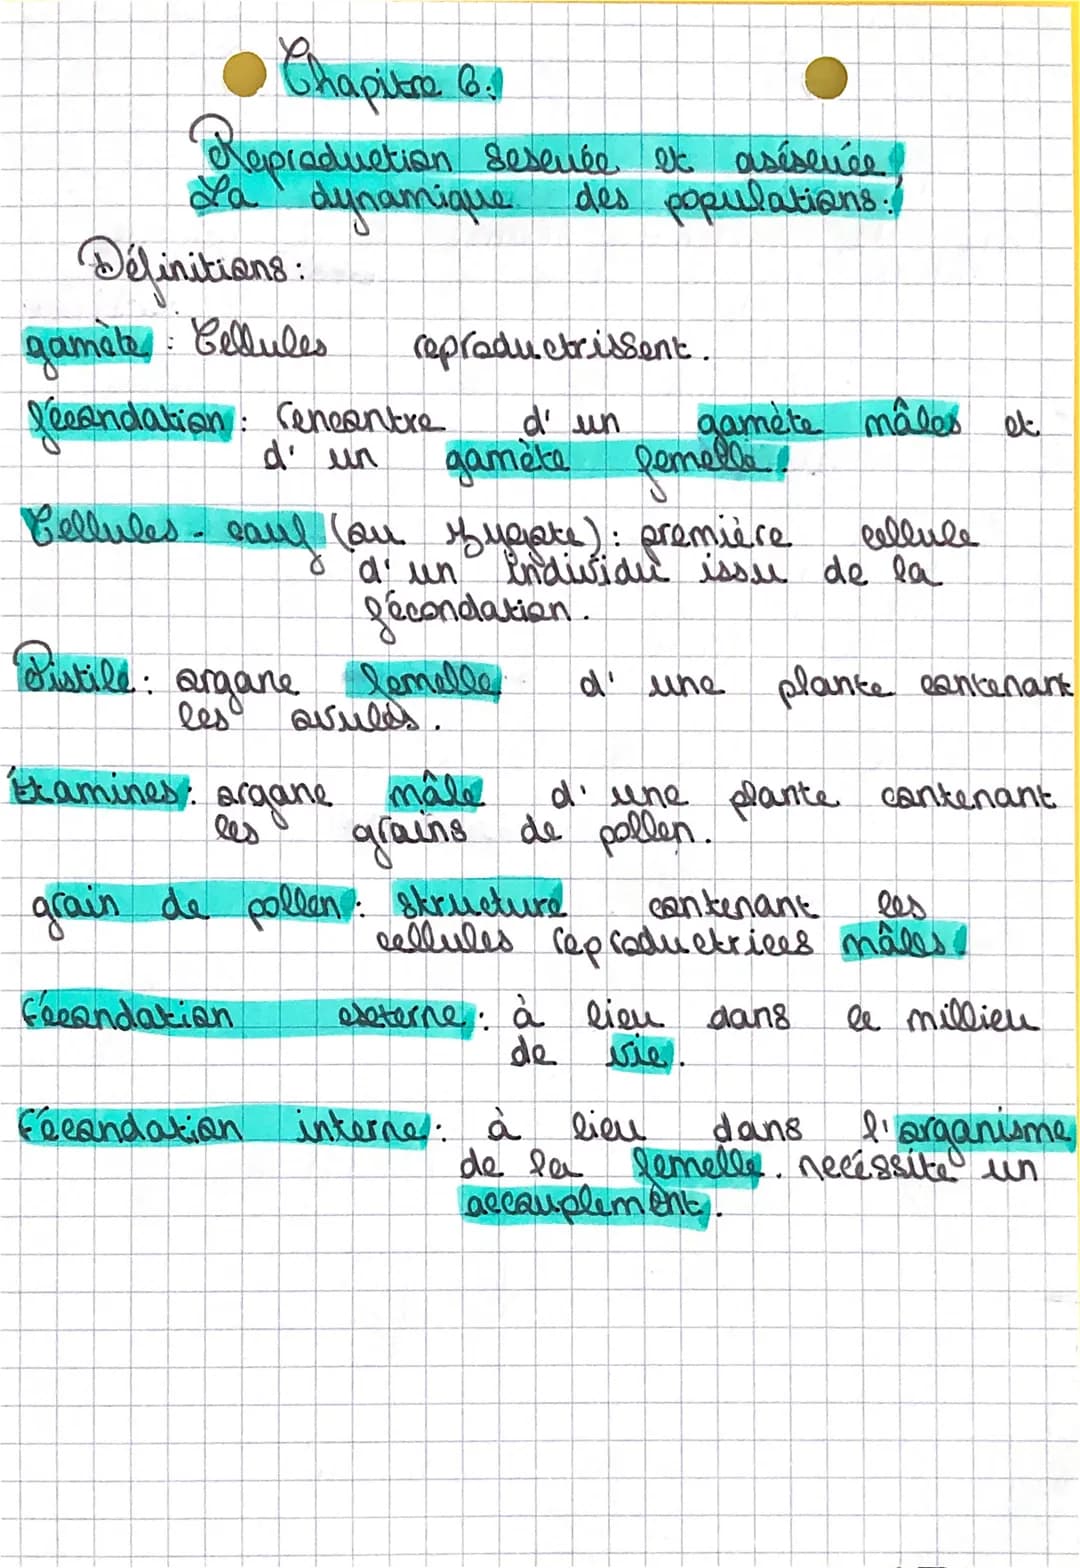 Chapitre 6:
Reproduction sexuée et aséxuée,
La dynamique des populations:
Définitions:
gamète : Cellules reproductrissent.
fécondation : rencontre d'un gamète mâles et
d'un gamète femelle.
Cellules-œuf (ou zygote) : première cellule
d'un individu issu de la
fécondation.
Pistile : organe femelle d'une plante contenant
les ovules.
Étamines : organe mâle d'une plante contenant
les grains de pollen.
grain de pollen : structure contenant les
cellules reproductrices mâles.
Fécondation externe : à lieu dans le millieu
de vie.
Fécondation interne : à lieu dans l'organisme
de la femelle. necéssite un
accouplement.